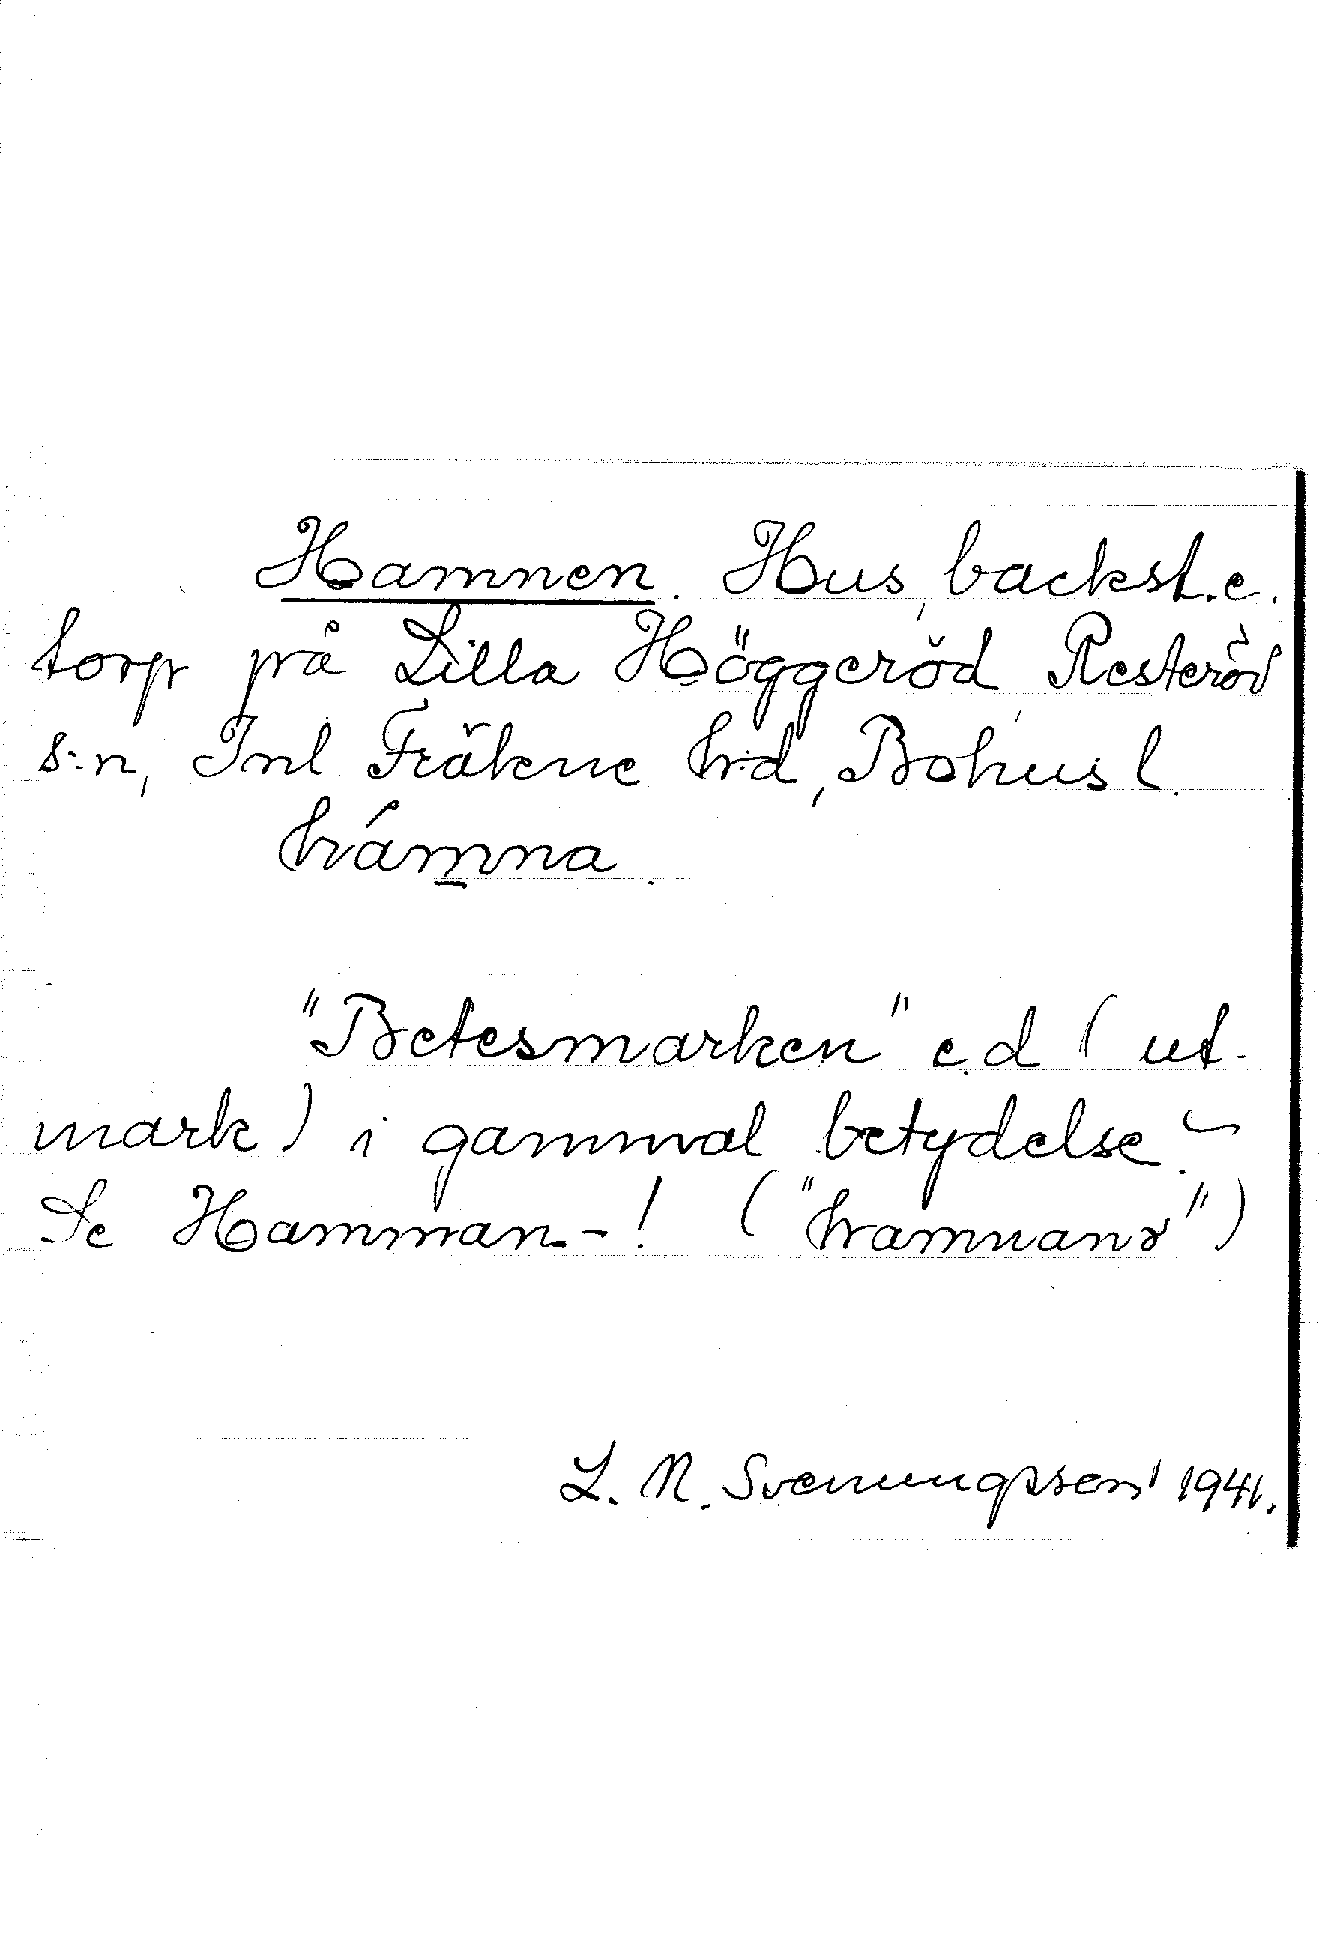 Hamnen. Hus, backst. e.
torp på Lilla Höggeröd, Resteröd
s:n, Inl Fräkne h:d, Bohusl.
hámna.
"Betesmarken" e.d (ut-
mark) i gammal betydelse. -
Se Hamman-! ("hamnanr")
L. N. Svenungsson 1941.